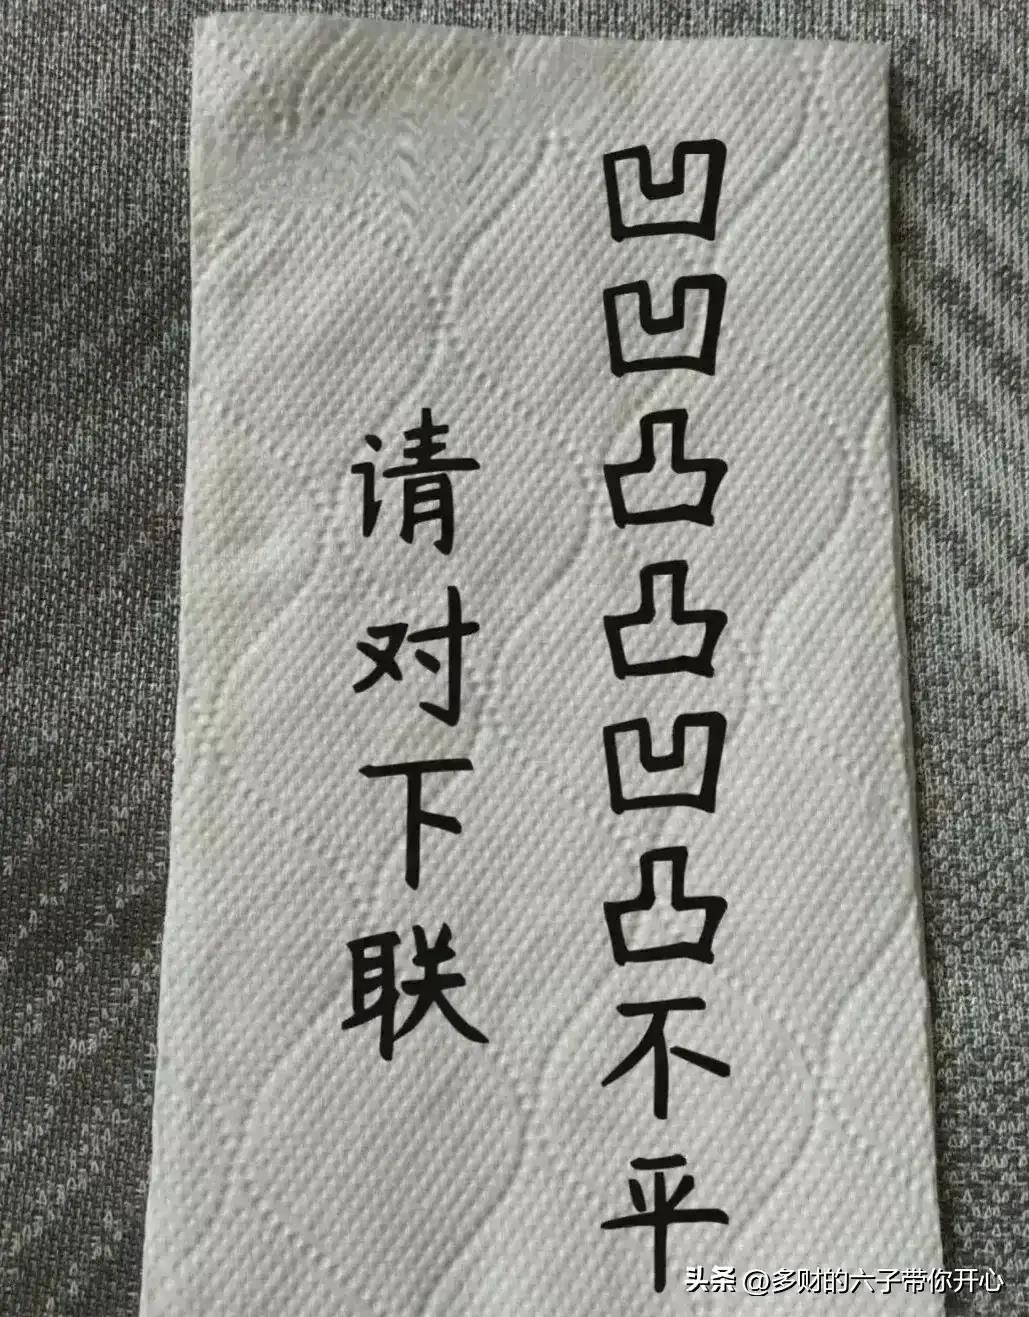 凹凹凸凸凹凸不平
请对下联
头条 @多财的六子带你开心